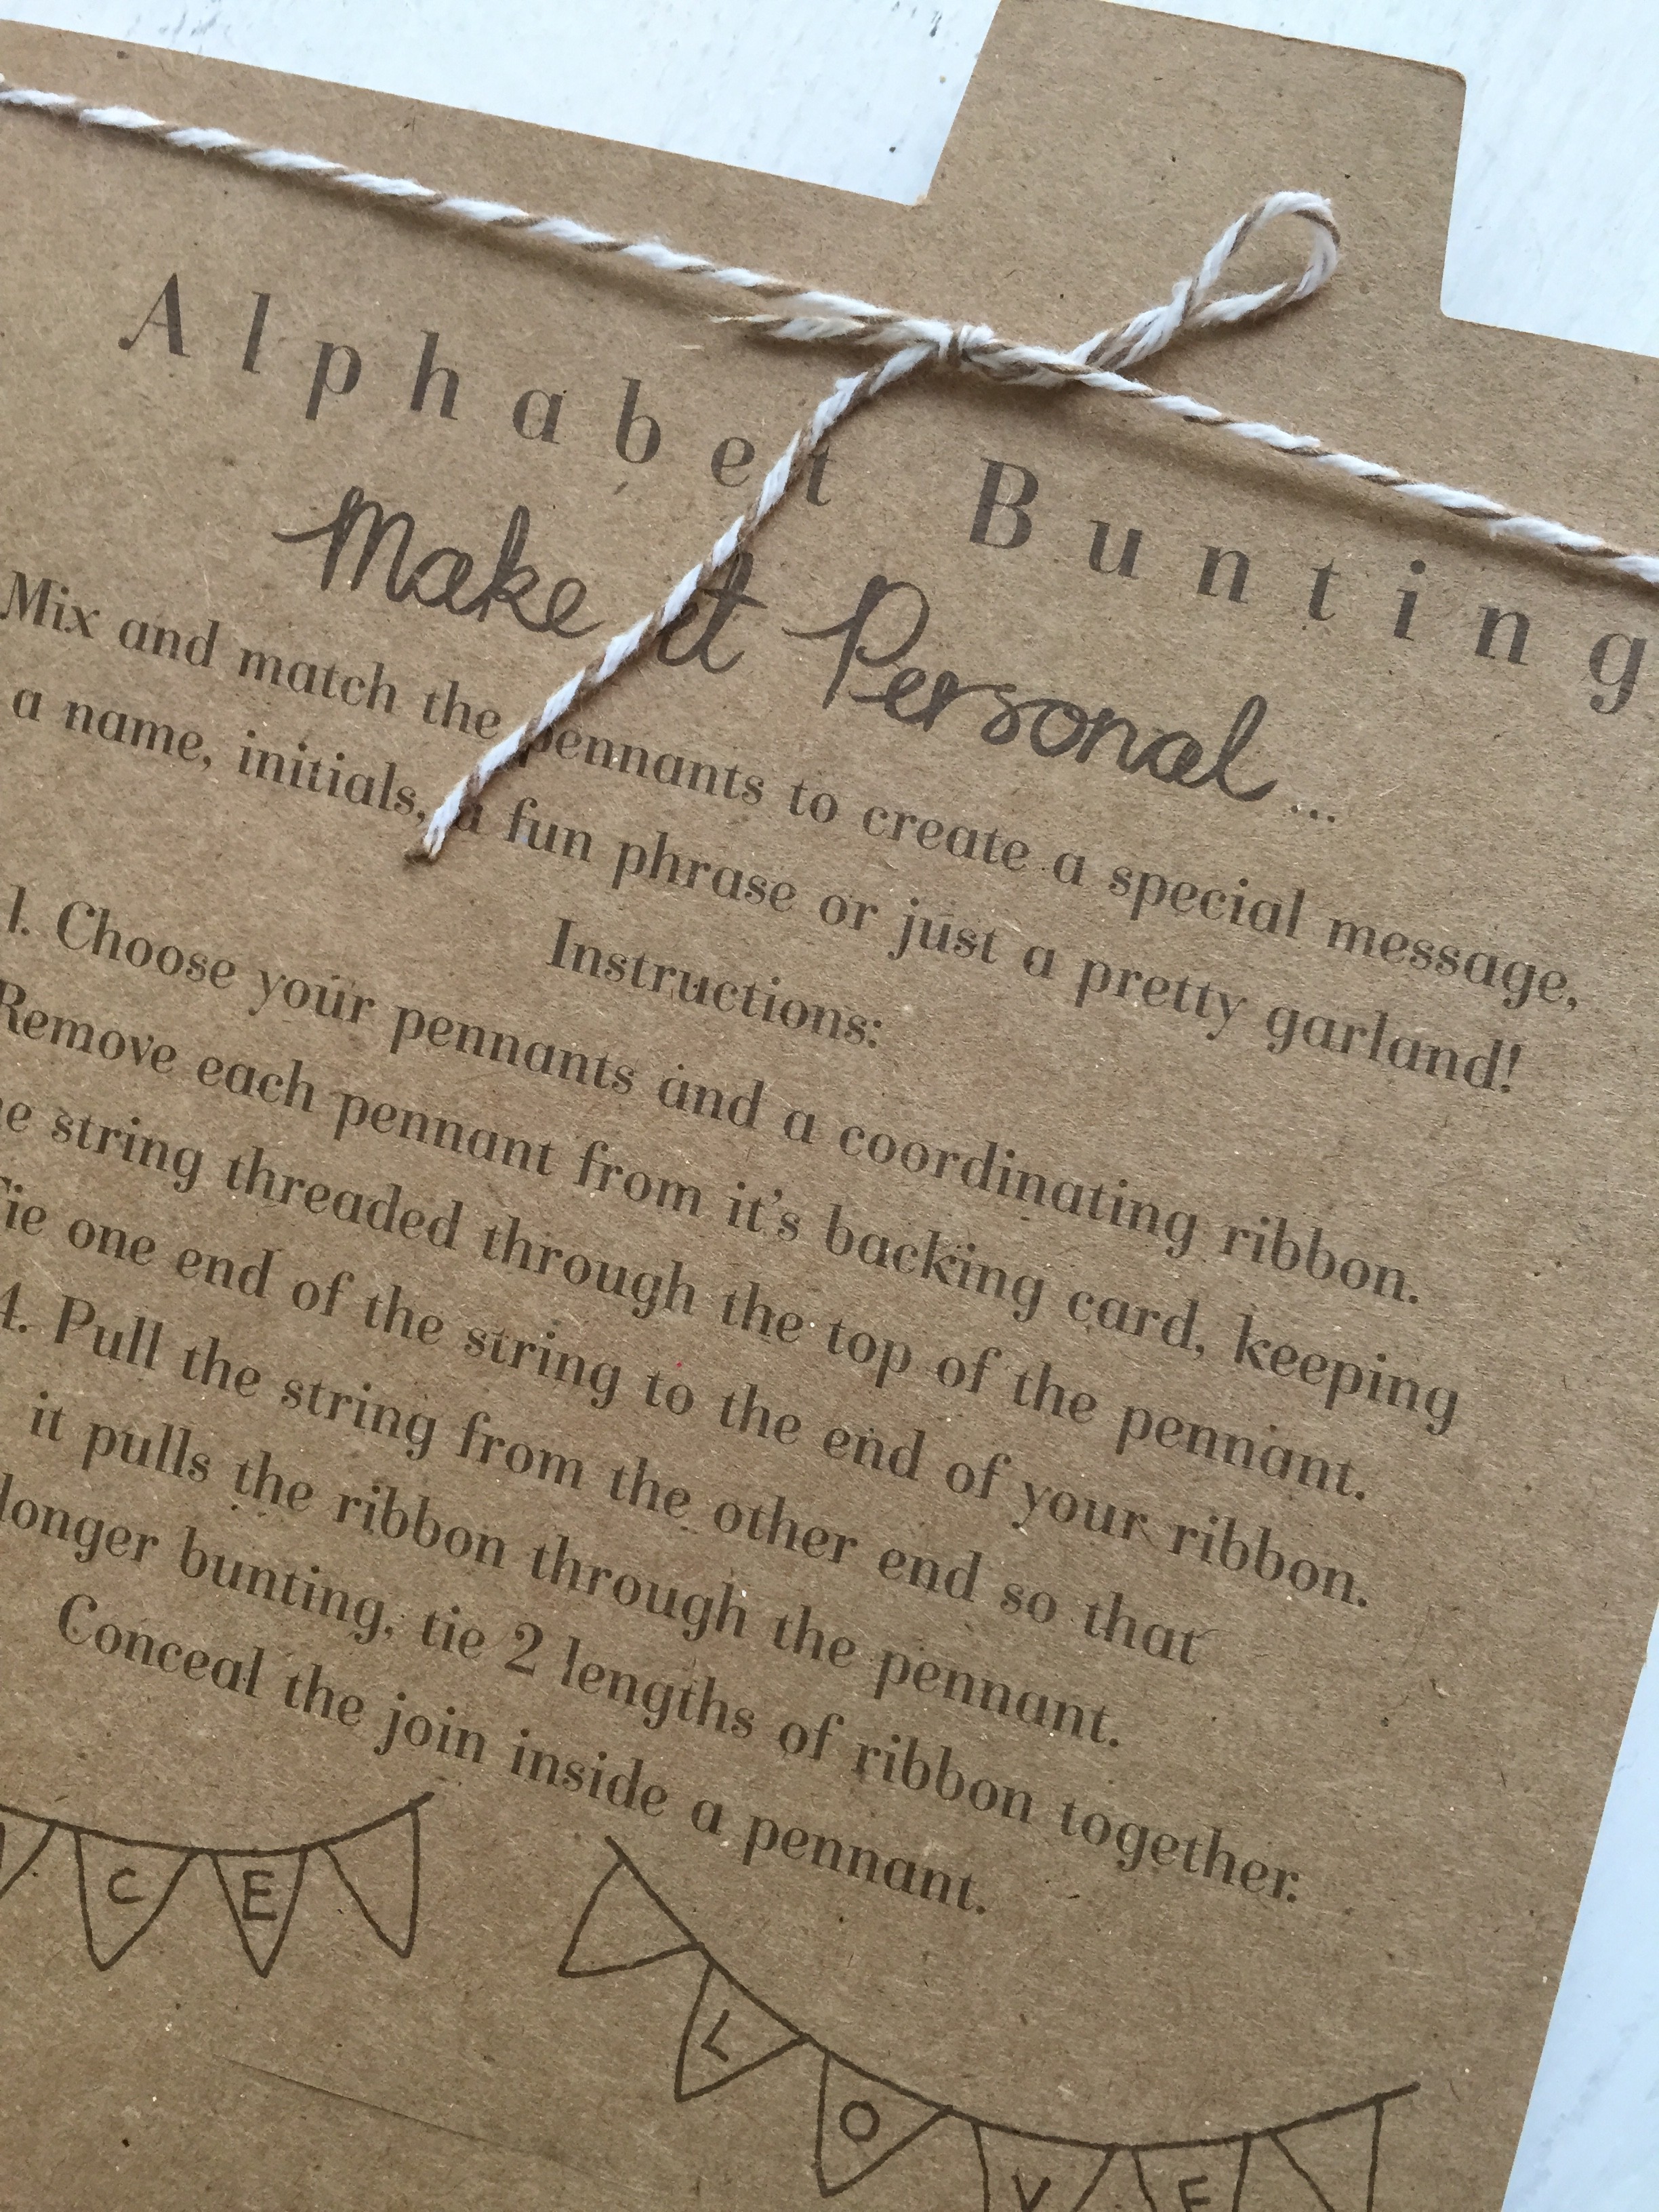 Alphabet Bunting
Make it Personal...
Mix and match the pennants to create a special message,
a name, initials, a fun phrase or just a pretty garland!
Instructions:
1. Choose your pennants and a coordinating ribbon.
Remove each pennant from it's backing card, keeping
string threaded through the top of the pennant.
Tie one end of the string to the end of your ribbon.
4. Pull the string from the other end so that
it pulls the ribbon through the pennant.
longer bunting, tie 2 lengths of ribbon together.
Conceal the join inside a pennant.
C E
L O V E